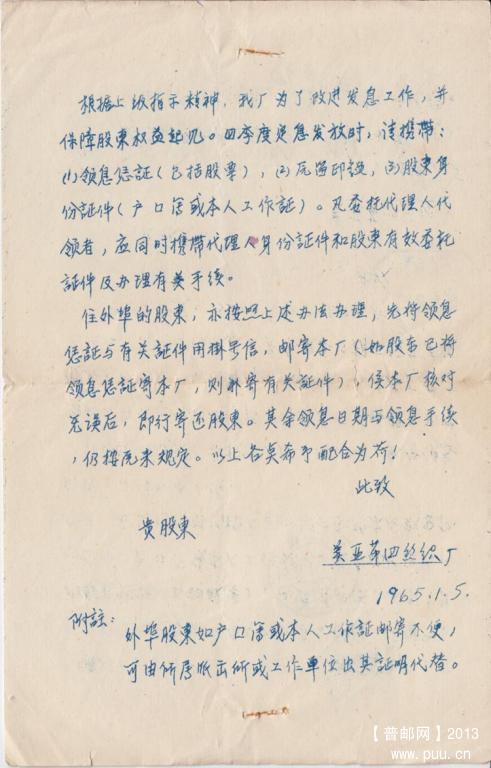 根据上级指示精神，我厂为了改进发息工作，并
保障股東权益起见。四季度定息发放时，请携带：
(1)领息凭証(包括股票)，(2)原留印鑑，(3)股東身
份証件(户口簿或本人工作証)。凡委托代理人代
领者，应同时携带代理人身份証件和股東有效委托
証件及办理有关手续。
住外埠的股東，亦按照上述办法办理，先将领息
凭証与有关証件用掛号信，邮寄本厂(如股东已将
领息凭証寄本厂，则补寄有关証件)，俟本厂核对
无误后，即行寄还股東。其余领息日期与领息手续
，仍按原来规定。以上各点希予配合为荷！
此致
贵股東
美亚第四丝织厂
1965.1.5.
附註：
外埠股東如户口簿或本人工作証邮寄不便，
可由所属派出所或工作单位出具証明代替。
【普邮网】2013
www.puu.cn